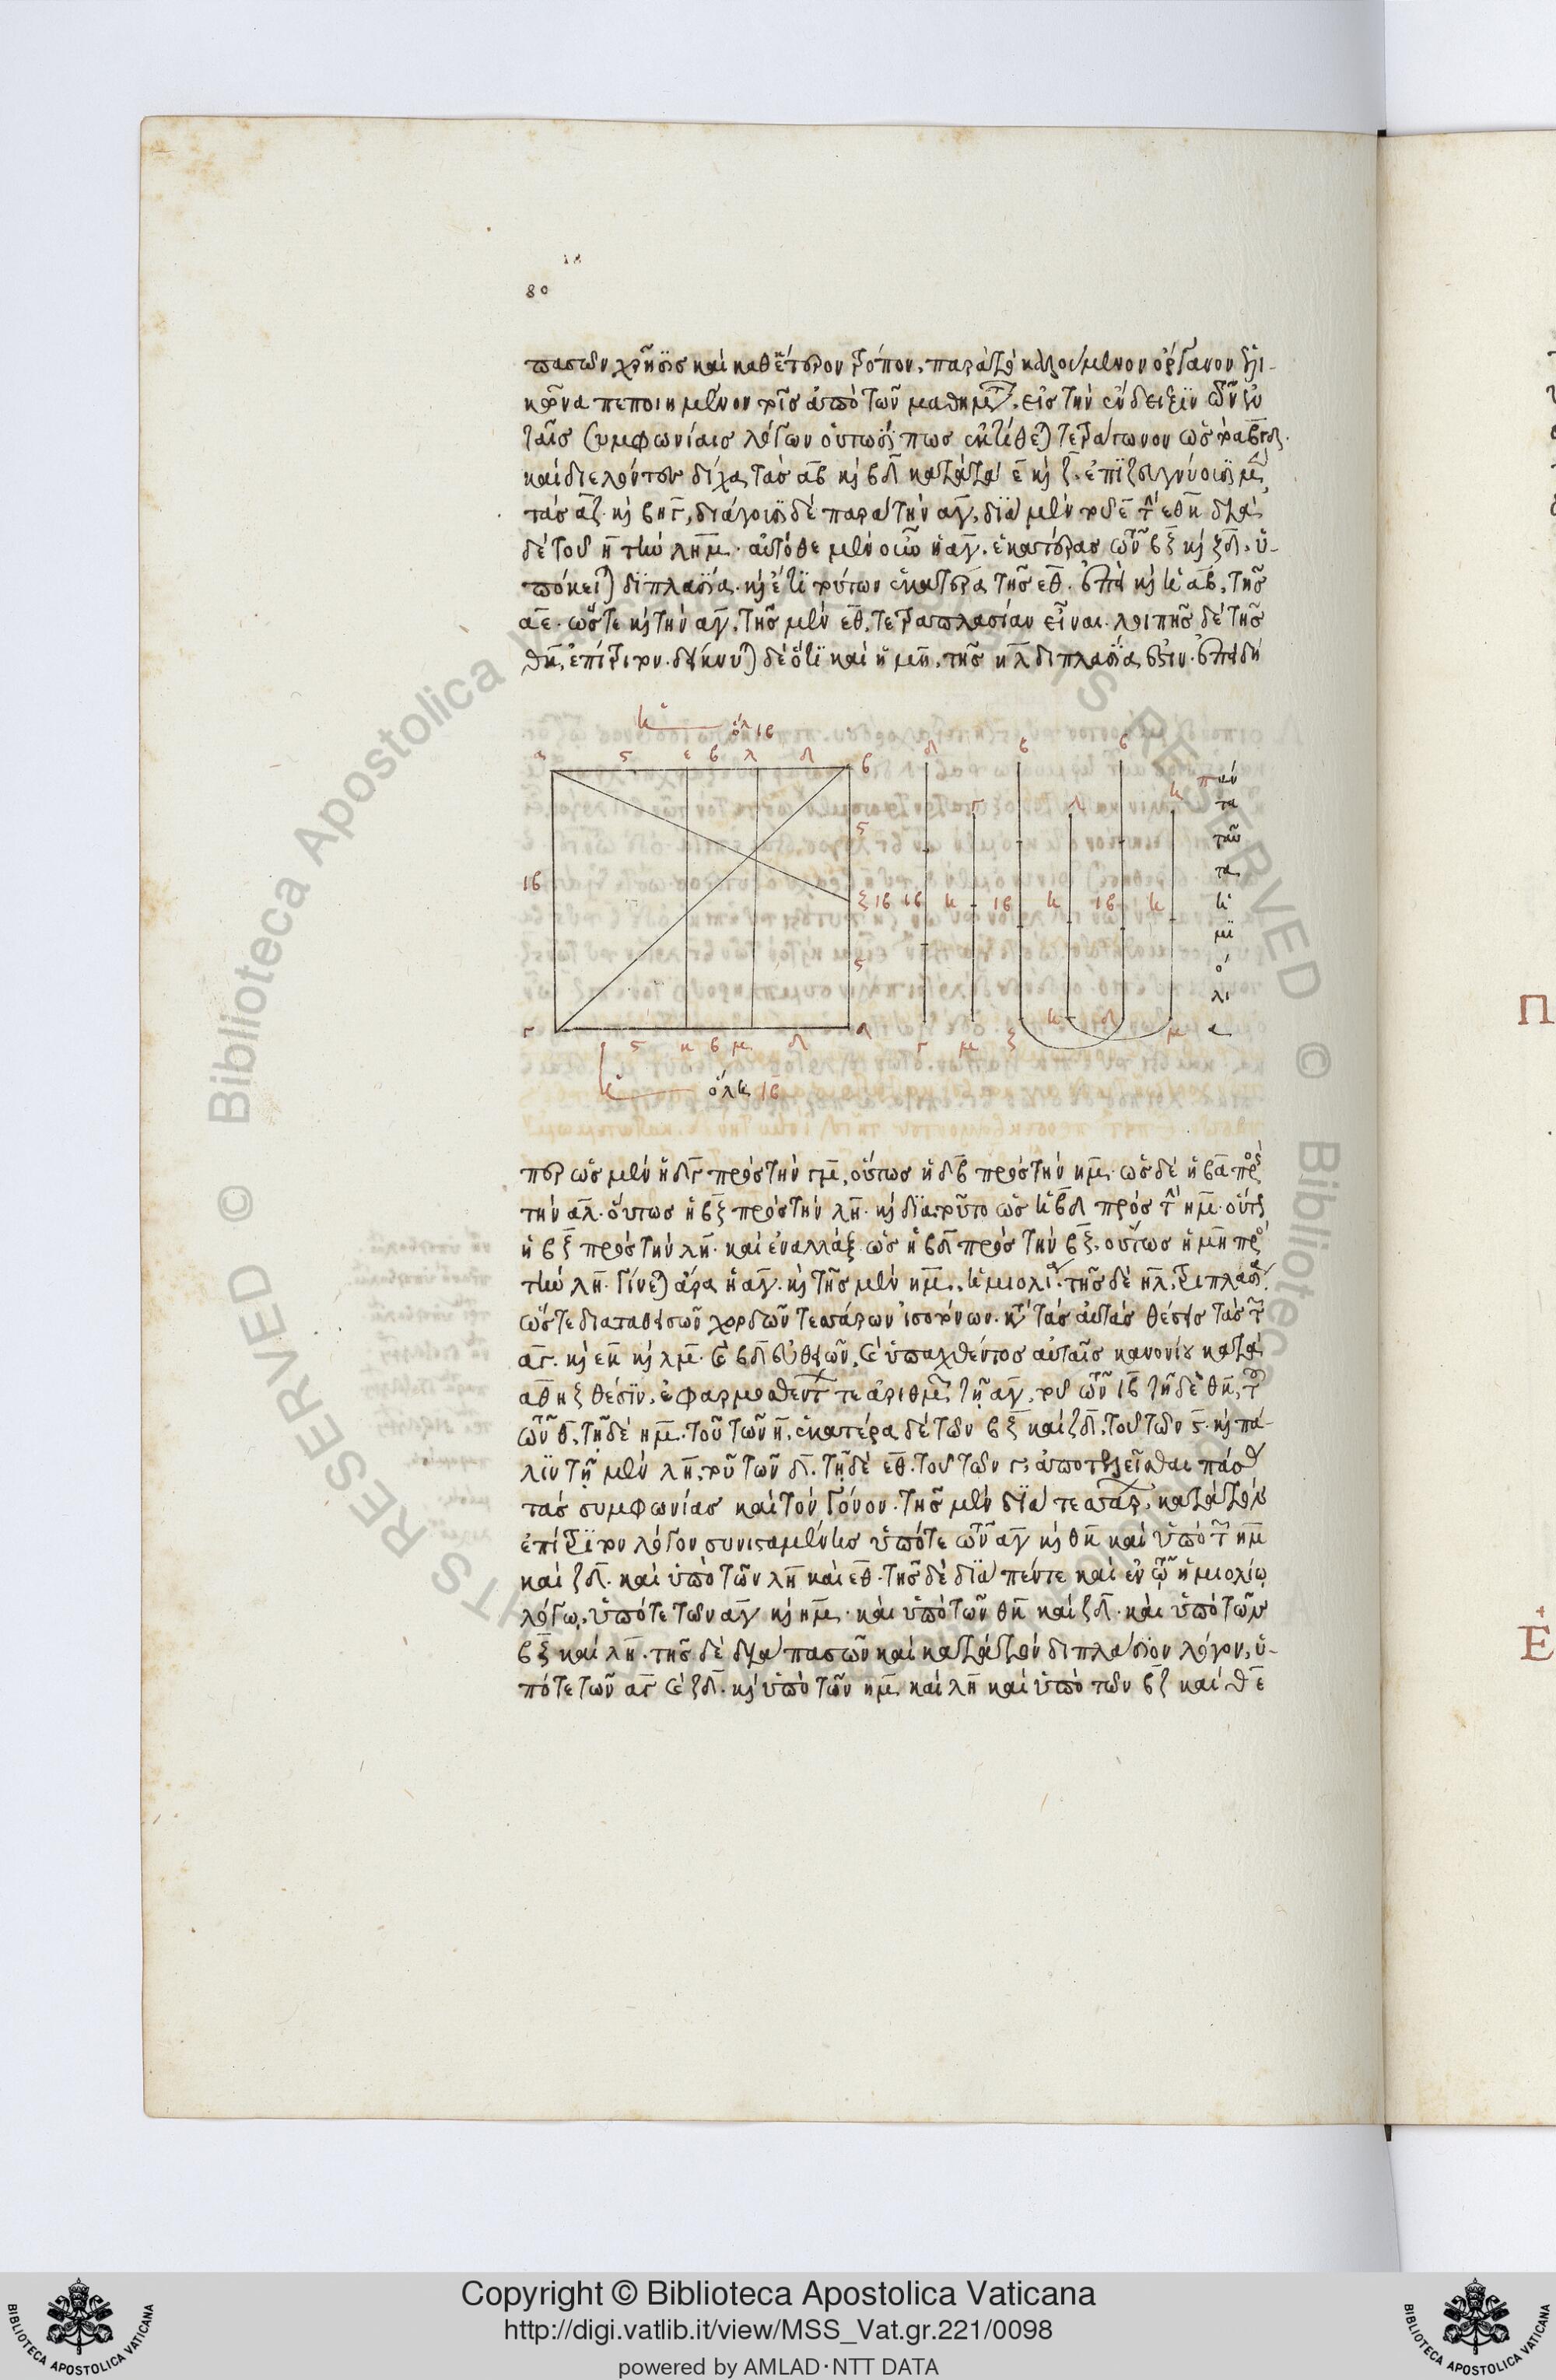 80
πασῶν χρῆσις καὶ καθ' ἕτερον τρόπον, παρὰ τὸ καλούμενον ὄργανον ἑλι-
κῶνα πεποιημένον τοῖς ἀπὸ τῶν μαθημάτ. εἰς τὴν ἔνδειξιν τῶν ἐν
ταῖς συμφωνίαις λόγων οὑτωσί πως ἐκτίθε) τετράγωνον ὡς τὸ αβγδ.
καὶ διελόντες δίχα τὰς αβ κ βδ κατὰ τὸ ε κ ζ. ἐπιζευγνύουσι μὲν
τὰς αζ κ βηγ, διάγουσι δὲ παρὰ τὴν αγ, διὰ μὲν τοῦ ε τ εθκ διὰ
δὲ τοῦ η τὴν ληµ. αὐτόθε μὲν οὖν ἡ αγ. ἑκατέρας τῶν βξ κ ξδ, ὑ-
πόκει) διπλασία. κ ἔτι τούτων ἑκατέρα τῆς εθ. ἐπεὶ κ ἡ αβ, τῆς
αε. ὥστε κ τὴν αγ, τῆς μὲν εθ, τετραπλασίαν εἶναι. λοιπῆς δὲ τῆς
θκ, ἐπίτριτον. δείκνυ) δὲ ὅτι καὶ ἡ μη, τῆς ηλ διπλασία ἐστιν. ἐπειδή
ὅλ ιβ
α ς ε β λ δ β
δ β β
ς γ λ κ
πάν
τα
τῶν
τα
ἡ
μι
ό
λι
α
ιβ
ξ ιβ ιβ η ιβ η ιβ η
ς
γ ς κ β μ δ δ γ μ ξ η δ μ
ὅλη ιβ
περ ὡς μὲν ἡ δγ πρὸς τὴν γμ, οὕτως ἡ δβ πρὸς τὴν ημ. ὡς δὲ ἡ βα πρὸς
τὴν αλ. οὕτως ἡ βξ πρὸς τὴν λη. κ διὰ τοῦτο ὡς ἡ βδ πρὸς τ ημ. οὕτως
ἡ βξ πρὸς τὴν λη. καὶ ἐναλλάξ ὡς ἡ βδ πρὸς τὴν βξ. οὕτως ἡ μη πρὸς
τὴν λη. γίνε) ἄρα ἡ αγ. κ τῆς μὲν ημ, ἡμιολία. τῆς δὲ ηλ, τριπλασί
ὥστε διαταθεισῶν χορδῶν τεσσάρων ἰσοτόνων. κατὰ τὰς αὐτὰς θέσεις τὰς τ
αγ. κ εκ κ λμ. καὶ βδ εὐθειῶν, καὶ ὑπαχθέντος αὐταῖς κανονίου κατὰ
αθηξ θέσιν, ἐφαρμοσθέντ τε ἀριθμ τῇ αγ, τοῦ τῶν ιβ τῇ δὲ θκ, τοῦ
τῶν θ, τῇ δὲ ημ. τοῦ τῶν η, ἑκατέρα δὲ τῶν βξ καὶ ζδ, τοῦ τῶν ς. κ πά-
λιν τῇ μὲν λη, τοῦ τῶν δ. τῇ δὲ εθ. τοῦ τῶν γ, ἀποτελεῖσθαι πάσ
τὰς συμφωνίας καὶ τὸν τόνον. τῆς μὲν διὰ τεσσάρ, κατὰ τὸν
ἐπίτριτον λόγον συνισταμένης ὑπό τε τῶν αγ κ θκ καὶ ὑπὸ τ ημ
καὶ ζδ. καὶ ὑπὸ τῶν λη καὶ εθ. τῆς δὲ διὰ πέντε καὶ ἐν τῷ ἡμιολίῳ
λόγῳ, ὑπό τε τῶν αγ κ ημ. καὶ ὑπὸ τῶν θκ καὶ ζδ. καὶ ὑπὸ τῶν
βξ καὶ λη. τῆς δὲ διὰ πασῶν καὶ κατὰ τὸν διπλάσιον λόγον, ὑ-
πό τε τῶν αγ καὶ ζδ. κ ὑπὸ τῶν ημ καὶ λη καὶ ὑπὸ τῶν βζ καὶ θε
Π
Ε
Copyright © Biblioteca Apostolica Vaticana
http://digi.vatlib.it/view/MSS_Vat.gr.221/0098
powered by AMLAD·NTT DATA